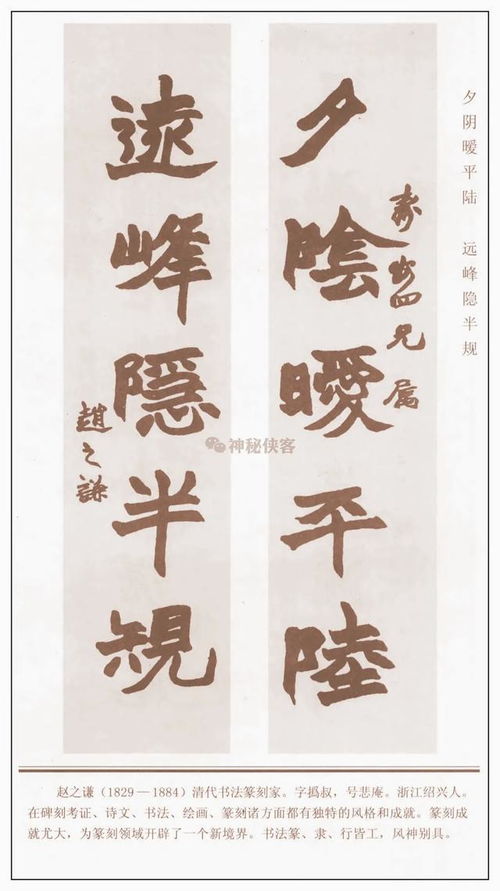 夕陰曖平陸
遠峰隱半規
四兄属
趙之謙
夕阴暧平陆 远峰隐半规
神秘侠客
赵之谦(1829—1884)清代书法篆刻家。字撝叔，号悲庵。浙江绍兴人。
在碑刻考证、诗文、书法、绘画、篆刻诸方面都有独特的风格和成就。篆刻成
就尤大，为篆刻领域开辟了一个新境界。书法篆、隶、行皆工，风神别具。